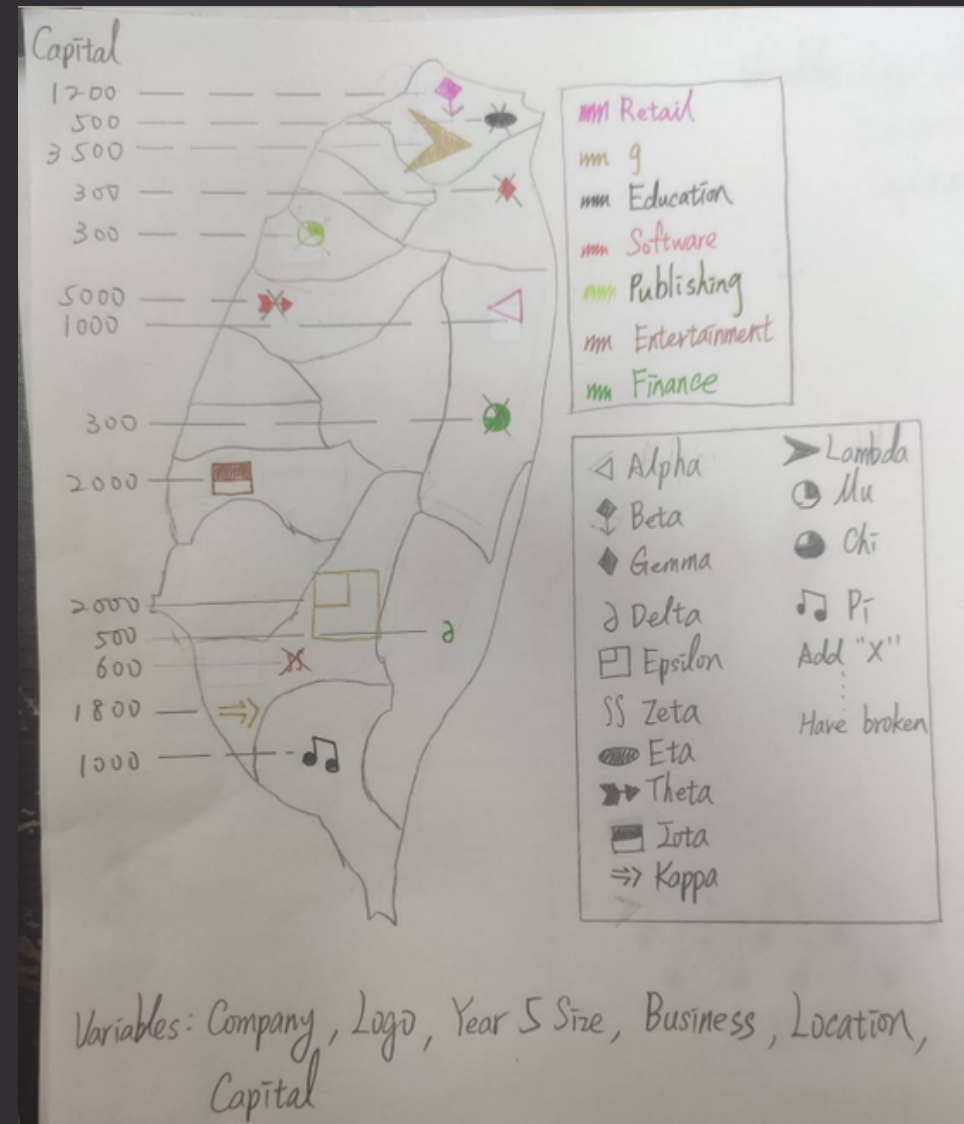 Capital
1200
500
3500
300
300
5000
1000
300
2000
2000
500
600
1800
1000
Retail
g
Education
Software
Publishing
Entertainment
Finance
Alpha
Beta
Gemma
∂ Delta
Epsilon
SS Zeta
Eta
Theta
Iota
⇒ Kappa
Lambda
Mu
Chi
♫ Pi
Add "X"
Have broken
Variables: Company, Logo, Year 5 Size, Business, Location,
Capital